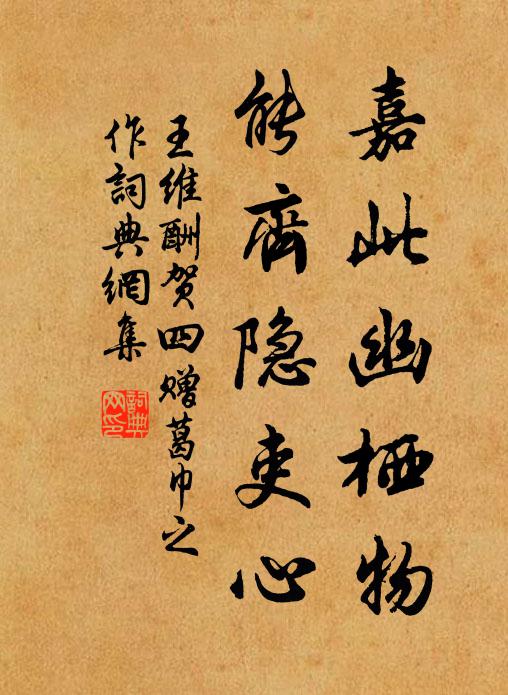 嘉此幽栖物
能齊隐吏心
王维酬贺四赠葛巾之
作詞典網集
詞典
网印